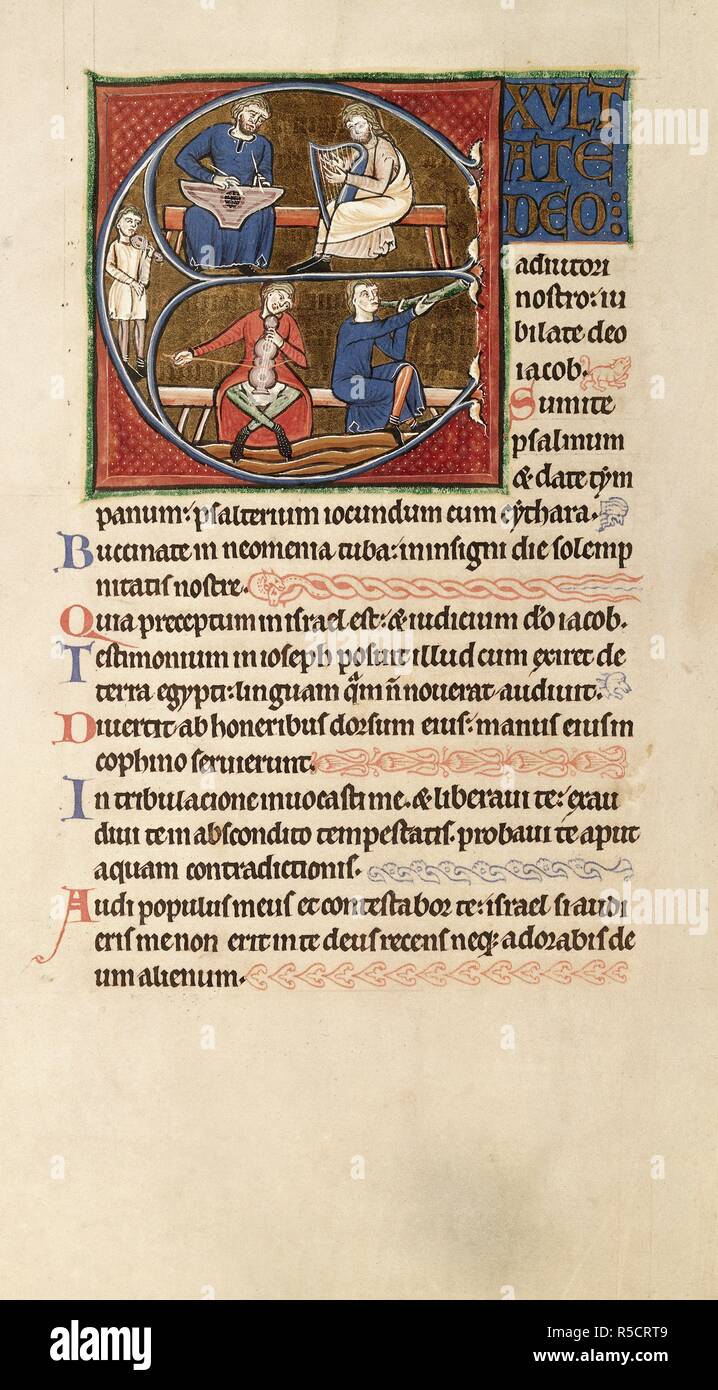 EXULT
ATE
DEO:
adiutori
nostro: iu
bilate deo
iacob.
Sumite
psalmum
& date tym
panum: psalterium iocundum cum cythara.
Buccinate in neomenia tuba: in insigni die solemp
nitatis nostre.
Quia preceptum in israel est: & iudicium do iacob.
Testimonium in ioseph posuit illud cum exiret de
terra egypti: linguam qm n noverat audiuit.
Diuertit ab honeribus dorsum eius: manus eius in
cophino seruierunt.
In tribulacione inuocasti me. & liberaui te: exau
diui te in abscondito tempestatis. probaui te aput
aquam contradictionis.
Audi populus meus et contestabor te: israel si audi
eris me non erit in te deus recens neq; adorabis de
um alienum.
alamy
Image ID: R5CRT9
www.alamy.com